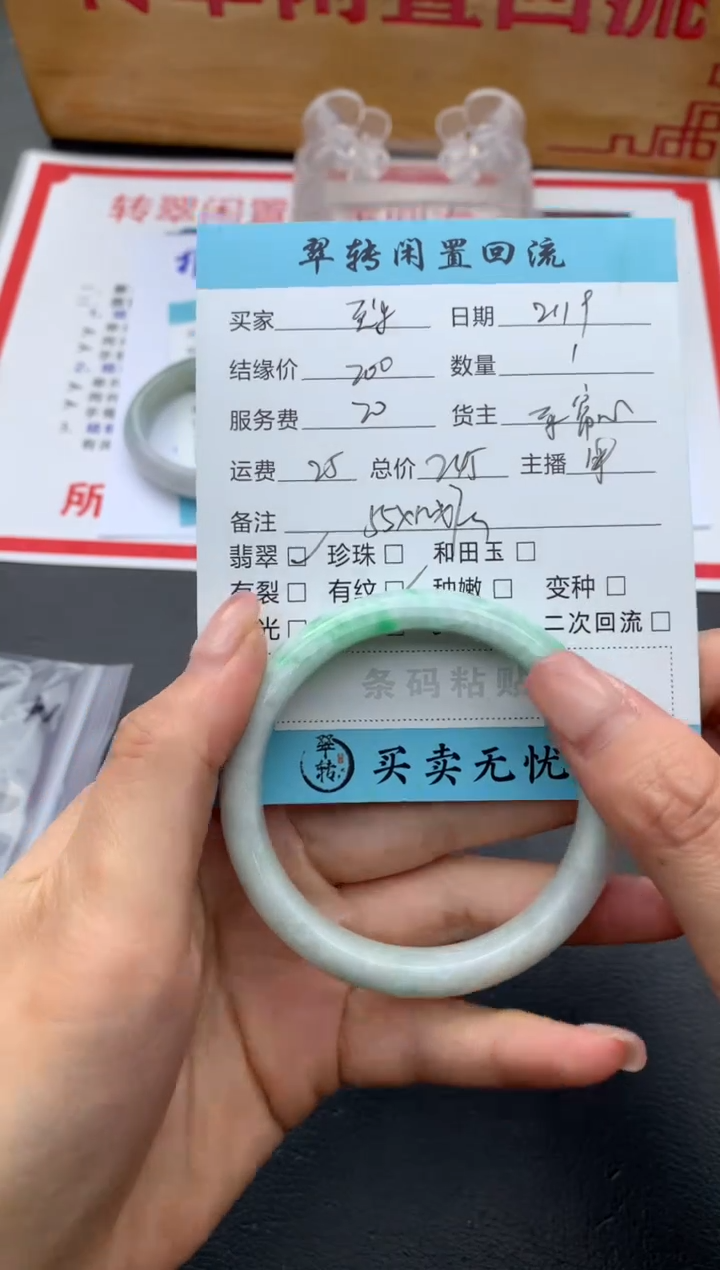 转翠闲置回流
转翠闲置
翠转闲置回流
买家 日期 2119
结缘价 200 数量 1
服务费 20 货主
运费 25 总价 245 主播
备注
翡翠 珍珠 和田玉
有裂 有纹 种嫩 变种
光 二次回流
条码粘贴
所
翠转 买卖无忧